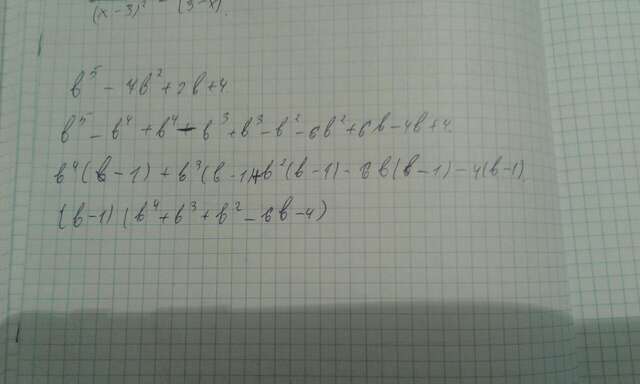 (x-3)² (3-x).
b⁵ - 7b² + 2b + 4.
b⁵ - b⁴ + b⁴ - b³ + b³ - b² - 6b² + 6b - 4b + 4.
b⁴(b-1) + b³(b-1)+b²(b-1) - 6b(b-1) - 4(b-1).
(b-1)(b⁴+b³+b²-6b-4)